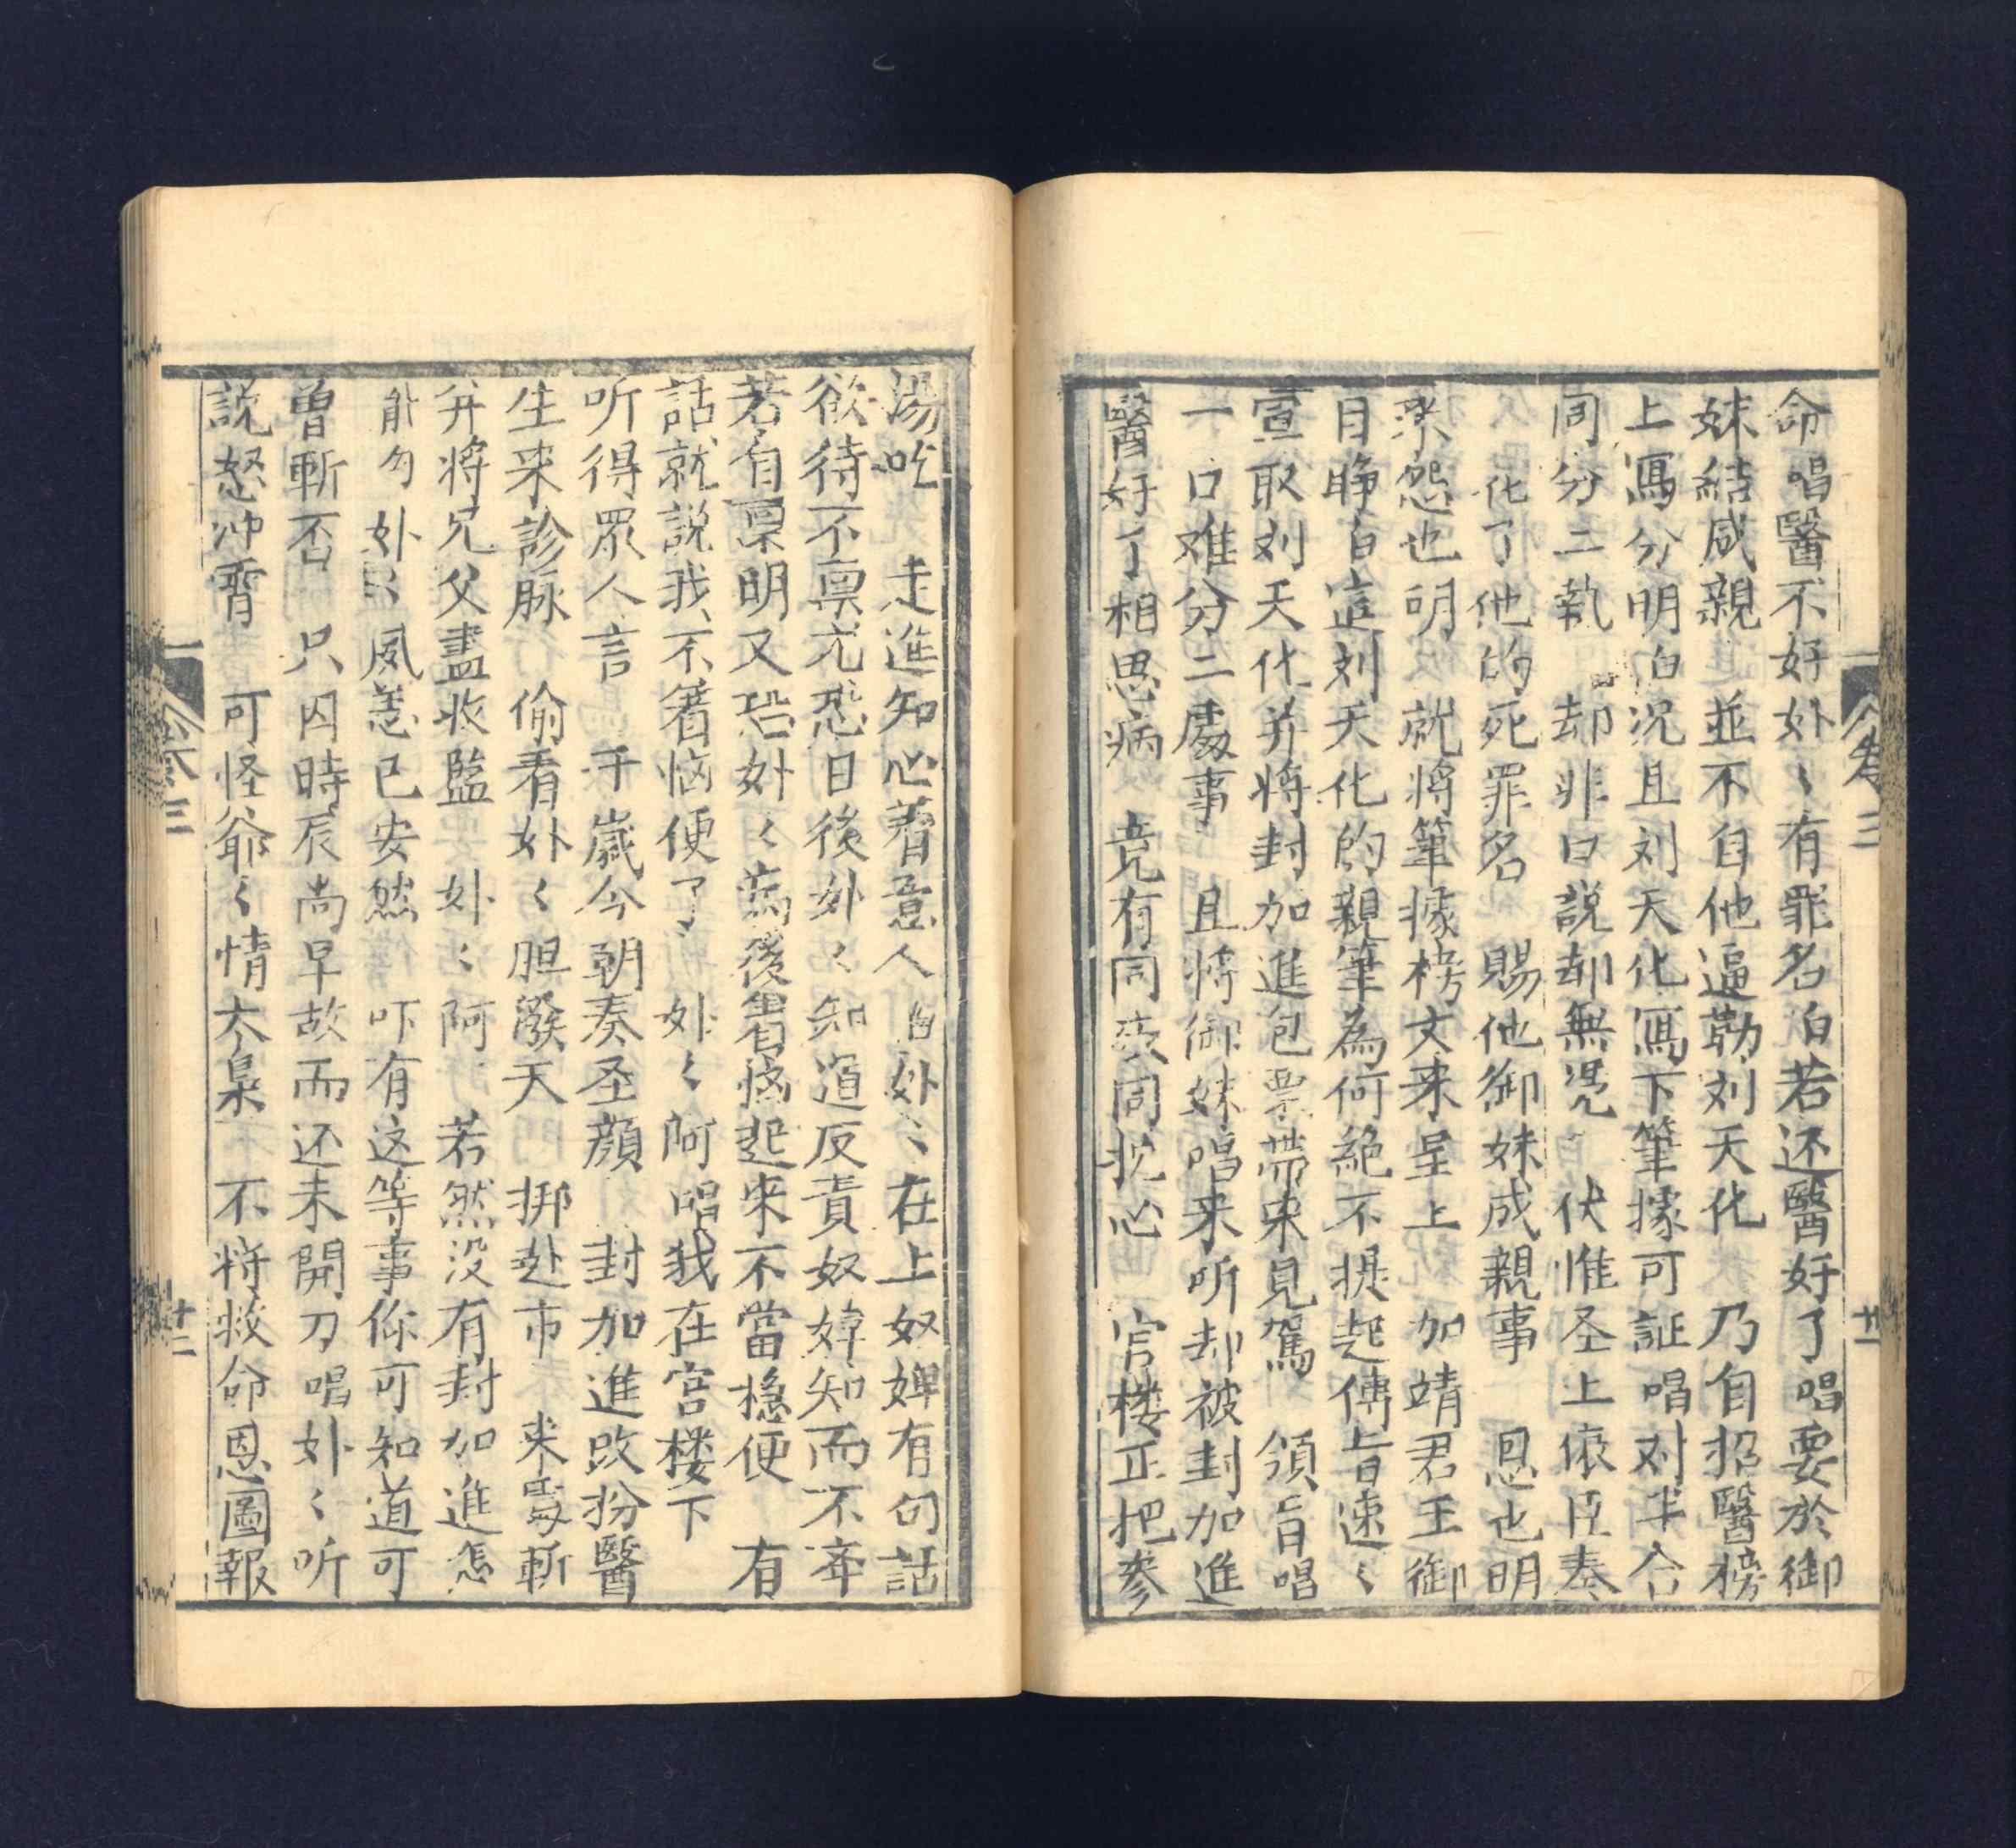 命 唱醫不好妣〻有罪名白若还醫好了唱要於御
妹結成親 並不自他逼勒刘天化 乃自招醫榜
上寫分明白况且刘天化寫下筆據可証唱对半合
同分二執 却非口説却無凭 伏惟圣上依臣奏
化了他的死罪名 賜他御妹成親事 恩也明
來怨也明 就將筆據榜文来呈上 加靖君王御
目睁白這刘天化的親筆為何絶不提起傳旨速〻
宣取刘天化并將封加進包票帶来見駕 領旨唱
一口难分二處事 且將御妹唱来听却被封加進
醫好了相思病 竟有同 同枕心 宫楼正把參
卷三
廿一
湯吃 走進知心着意人白妣〻在上奴婢有句話
欲待不禀尤恐日後妣〻知道反責奴婢知而不奔
若有禀明又恐妣〻病後着惱起来不當穩便 有
話就説我不着惱便了 妣〻阿唱我在宫楼下
听得眾人言 千歲今朝奏圣顔 封加進改扮醫
生来診脉 偷看妣〻胆潑天 挷赴市 来處斬
并將兄父盡收監 妣〻阿 若然没有封加進怎
能勾妣〻風恙已安然 吓有这等事你可知道可
曾斬否 只因時辰尚早故而还未開刀唱妣〻听
説怒冲霄 可怪爺〻情太梟 不將救命恩圖報
卷三
廿二